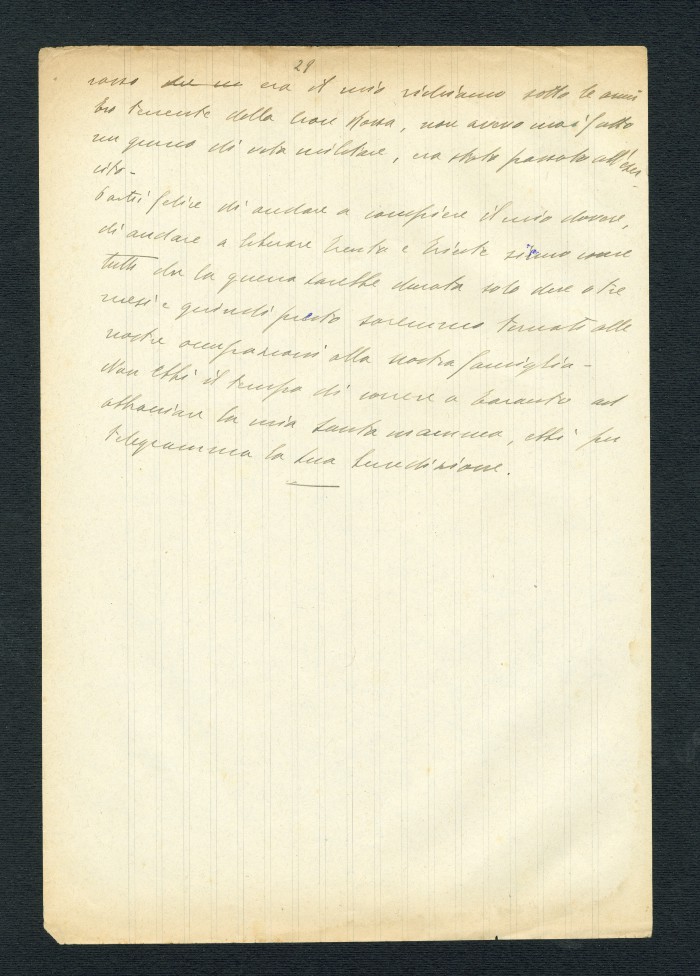 29
rosso che m era il mio richiamo sotto le armi
Ero tenente della Croce Rossa, non avevo mai fatto
un giorno di vita militare, ero stato passato all'eser-
cito -
Partii felice di andare a compiere il mio dovere,
di andare a liberare Trento e Trieste
tutti che la guerra sarebbe durata solo due o tre
mesi e quindi presto saremmo tornati alle
nostre occupazioni alla nostra famiglia -
Non ebbi il tempo di correre a Taranto ad
abbracciare la mia santa mamma, ebbi per
telegramma la sua benedizione.